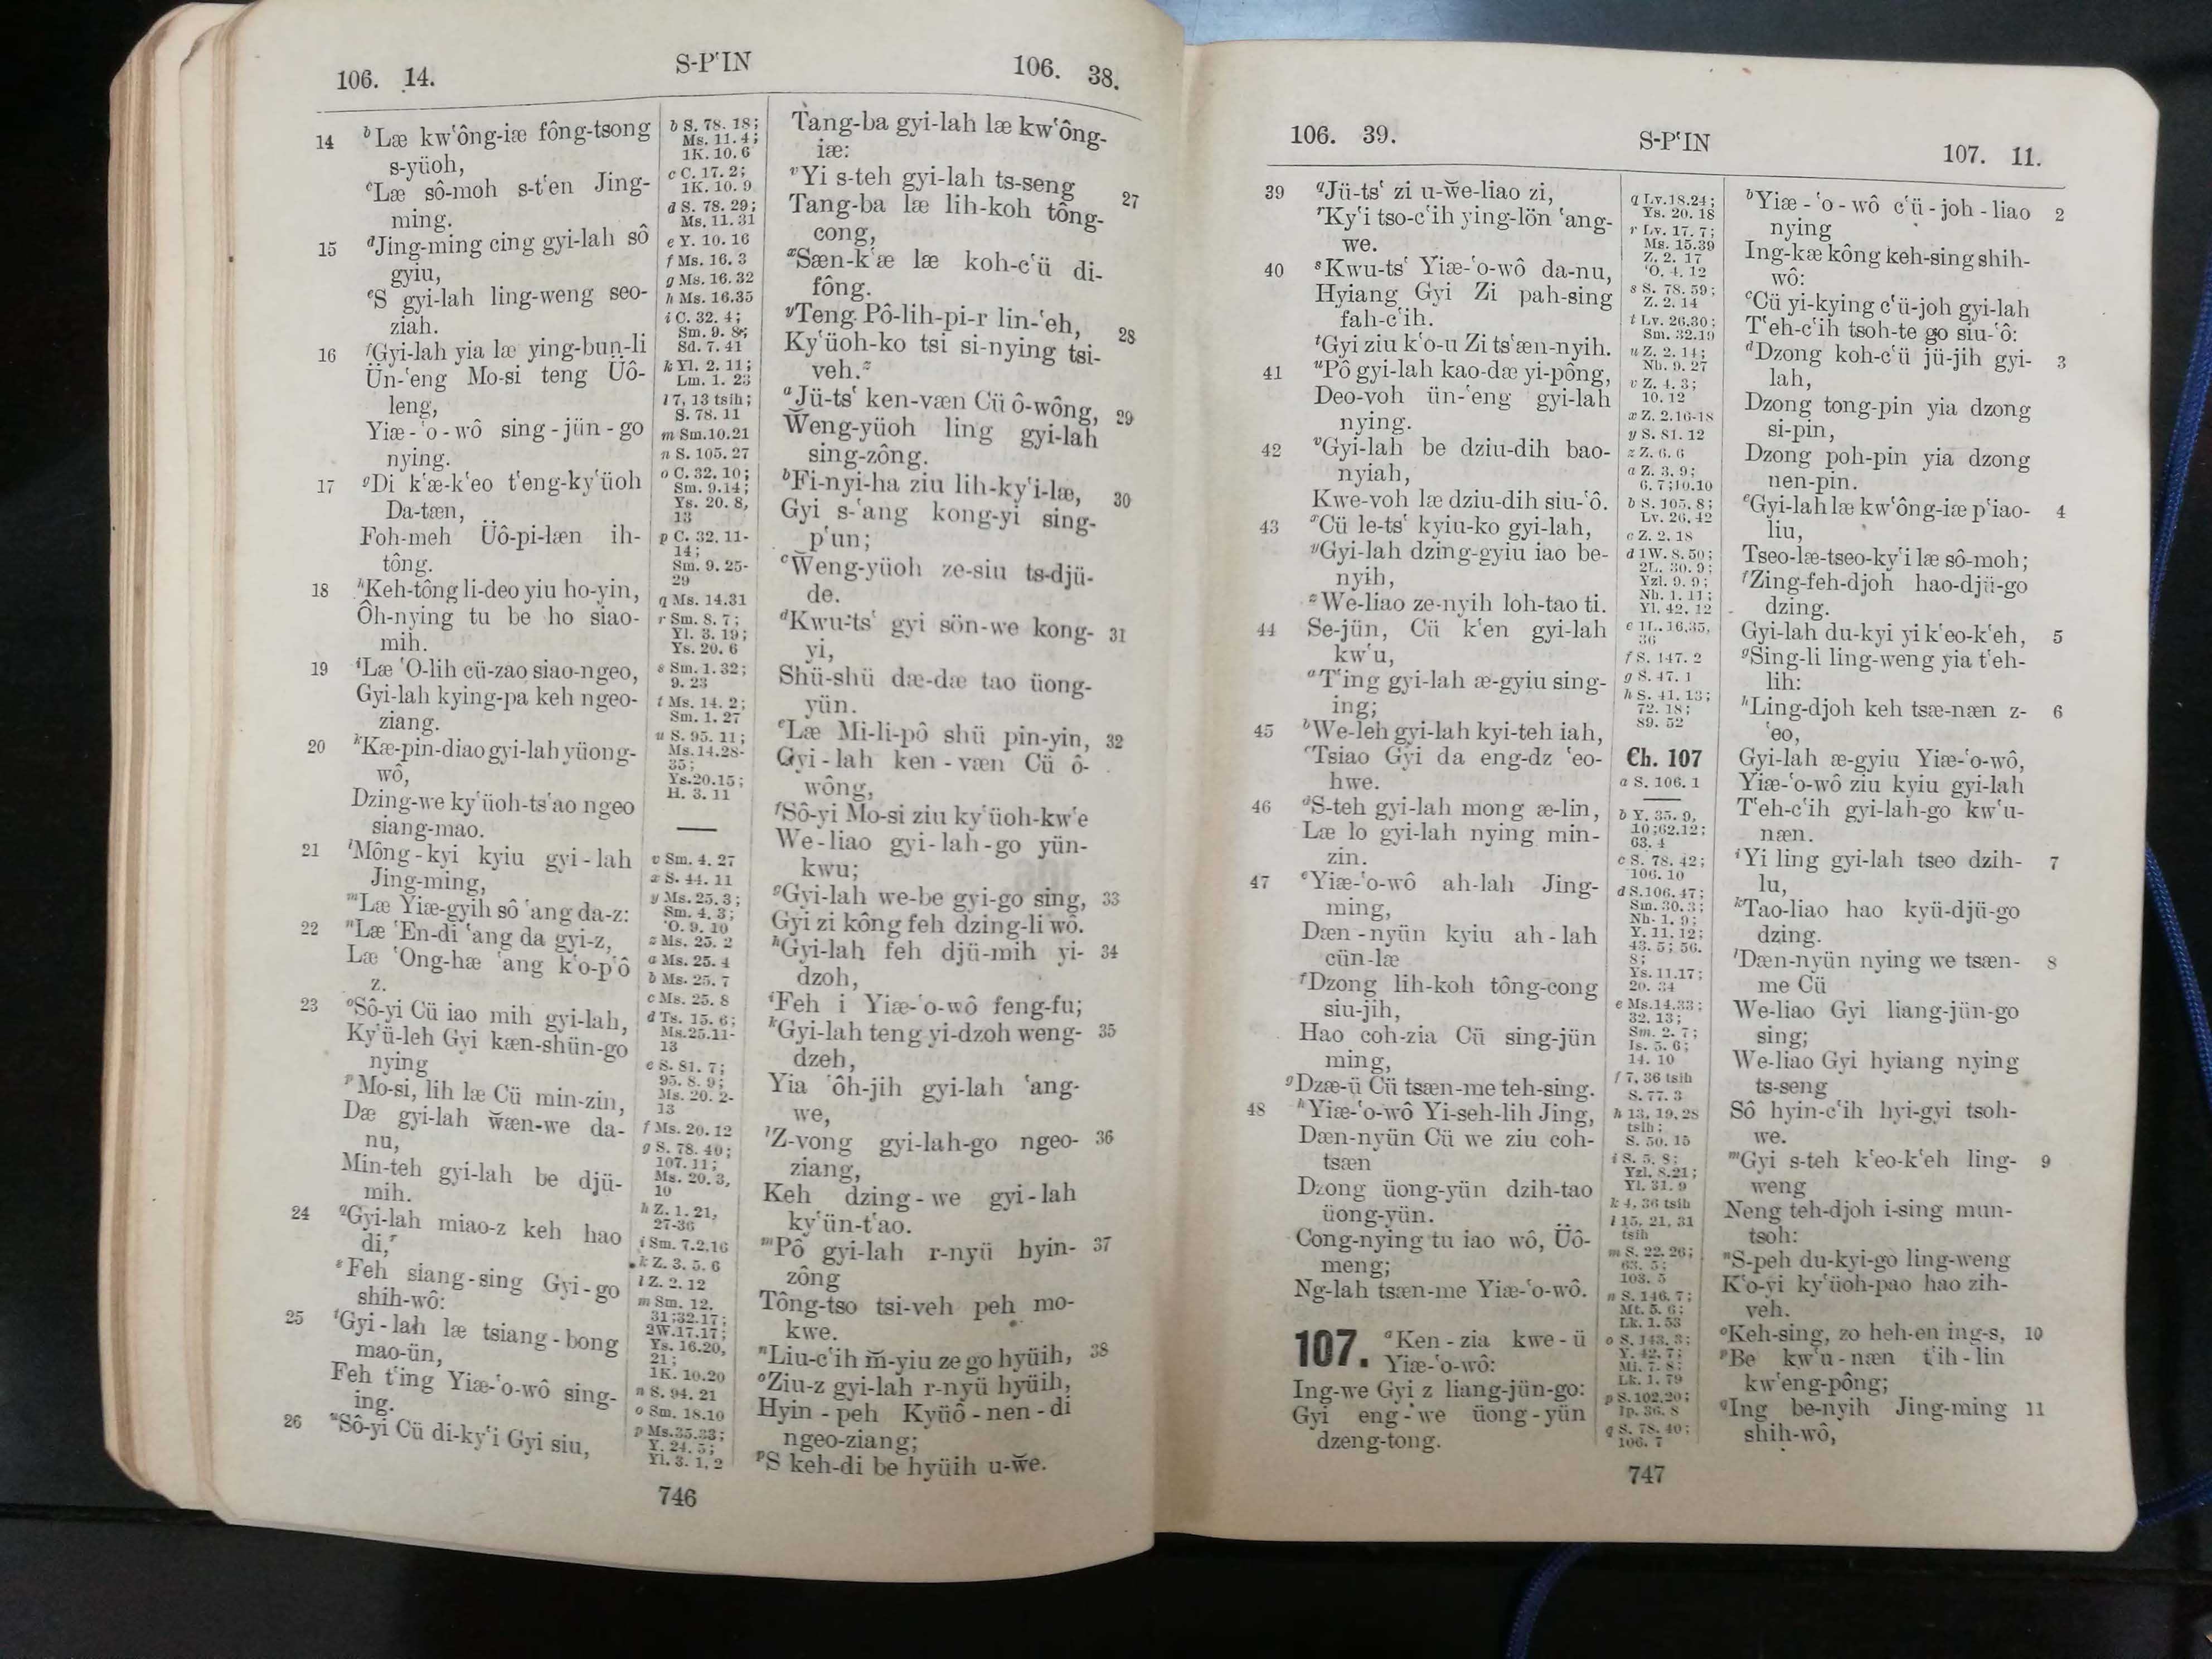 106. 14.
S-PʻIN
106. 38.
14 ᵇLæ kwʻông-iæ fông-tsong
s-yüoh,
ᶜLæ sô-moh s-tʻen Jing-
ming.
15 ᵈJing-ming cing gyi-lah sô
gyiu,
ᵉS gyi-lah ling-weng seo-
ziah.
16 ᶠGyi-lah yia læ ying-bun-li
Ün-ʻeng Mo-si teng Üô-
leng,
Yiæ-ʻo-wô sing-jün-go
nying.
17 ᵍDi kʻæ-kʻeo tʻeng-kyʻüoh
Da-tæn,
Foh-meh Üô-pi-læn ih-
tông.
18 ʰKeh-tông li-deo yiu ho-yin,
Ôh-nying tu be ho siao-
mih.
19 ⁱLæ ʻO-lih cü-zao siao-ngeo,
Gyi-lah kying-pa keh ngeo-
ziang.
20 ᵏKæ-pin-diao gyi-lah yüong-
wô,
Dzing-we kyʻüoh-tsʻao ngeo
siang-mao.
21 ˡMông-kyi kyiu gyi-lah
Jing-ming,
ᵐLæ Yiæ-gyih sô ʻang da-z:
22 ⁿLæ ʻEn-di ʻang da gyi-z,
Læ ʻOng-hæ ʻang kʻo-pʻô
z.
23 ᵒSô-yi Cü iao mih gyi-lah,
Kyʻü-leh Gyi kæn-shün-go
nying
ᵖMo-si, lih læ Cü min-zin,
Dæ gyi-lah w̆æn-we da-
nu,
Min-teh gyi-lah be djü-
mih.
24 ᑫGyi-lah miao-z keh hao
di,ʳ
ˢFeh siang-sing Gyi-go
shih-wô:
25 ᵗGyi-lah læ tsiang-bong
mao-ün,
Feh tʻing Yiæ-ʻo-wô sing-
ing.
26 ᵘSô-yi Cü di-kyʻi Gyi siu,
b S. 78. 18;
Ms. 11. 4;
1K. 10. 6
c C. 17. 2;
1K. 10. 9
d S. 78. 29;
Ms. 11. 31
e Y. 10. 16
f Ms. 16. 3
g Ms. 16. 32
h Ms. 16. 35
i C. 32. 4;
Sm. 9. 8;
Sd. 7. 41
k Yl. 2. 11;
Lm. 1. 23
l 7, 13 tsih;
S. 78. 11
m Sm. 10. 21
n S. 105. 27
o C. 32. 10;
Sm. 9. 14;
Ys. 20. 8,
13
p C. 32. 11-
14;
Sm. 9. 25-
29
q Ms. 14. 31
r Sm. 8. 7;
Yl. 3. 19;
Ys. 20. 6
s Sm. 1. 32;
9. 23
t Ms. 14. 2;
Sm. 1. 27
u S. 95. 11;
Ms. 14. 28-
35;
Ys. 20. 15;
H. 3. 11
v Sm. 4. 27
x S. 44. 11
y Ms. 25. 3;
Sm. 4. 3;
ʻO. 9. 10
z Ms. 25. 2
a Ms. 25. 4
b Ms. 25. 7
c Ms. 25. 8
d Ts. 15. 6;
Ms. 25. 11-
13
e S. 81. 7;
95. 8. 9;
Ms. 20. 2-
13
f Ms. 20. 12
g S. 78. 40;
107. 11;
Ms. 20. 3,
10
h Z. 1. 21,
27-36
i Sm. 7. 2. 16
k Z. 3. 5. 6
l Z. 2. 12
m Sm. 12.
31; 32. 17;
2W. 17. 17;
Ys. 16. 20,
21;
1K. 10. 20
n S. 94. 21
o Sm. 18. 10
p Ms. 35. 33;
Y. 24. 5;
Yl. 3. 1, 2
Tang-ba gyi-lah læ kwʻông-
iæ:
ᵛYi s-teh gyi-lah ts-seng 27
Tang-ba læ lih-koh tông-
cong,
ˣSæn-kʻæ læ koh-cʻü di-
fông.
ʸTeng Pô-lih-pi-r lin-ʻeh, 28
Kyʻüoh-ko tsi si-nying tsi-
veh.ᶻ
ᵃJü-tsʻ ken-væn Cü ô-wông, 29
W̆eng-yüoh ling gyi-lah
sing-zông.
ᵇFi-nyi-ha ziu lih-kyʻi-læ, 30
Gyi s-ʻang kong-yi sing-
pʻun;
ᶜW̆eng-yüoh ze-siu ts-djü-
de.
ᵈKwu-tsʻ gyi sön-we kong- 31
yi,
Shü-shü dæ-dæ tao üong-
yün.
ᵉLæ Mi-li-pô shü pin-yin, 32
Gyi-lah ken-væn Cü ô-
wông,
ᶠSô-yi Mo-si ziu kyʻüoh-kwʻe
We-liao gyi-lah-go yün-
kwu;
ᵍGyi-lah we-be gyi-go sing, 33
Gyi zi kông feh dzing-li wô.
ʰGyi-lah feh djü-mih yi- 34
dzoh,
ⁱFeh i Yiæ-ʻo-wô feng-fu;
ᵏGyi-lah teng yi-dzoh weng- 35
dzeh,
Yia ʻôh-jih gyi-lah ʻang-
we,
ˡZ-vong gyi-lah-go ngeo- 36
ziang,
Keh dzing-we gyi-lah
kyʻün-tʻao.
ᵐPô gyi-lah r-nyü hyin- 37
zông
Tông-tso tsi-veh peh mo-
kwe.
ⁿLiu-cʻih m̆-yiu ze go hyüih, 38
ᵒZiu-z gyi-lah r-nyü hyüih,
Hyin-peh Kyüô-nen-di
ngeo-ziang;
ᵖS keh-di be hyüih u-w̆e.
746
106. 39.
S-PʻIN
107. 11.
39 ᑫJü-tsʻ zi u-w̆e-liao zi,
ʳKyʻi tso-cʻih ying-lön ʻang-
we.
40 ˢKwu-tsʻ Yiæ-ʻo-wô da-nu,
Hyiang Gyi Zi pah-sing
fah-cʻih.
ᵗGyi ziu kʻo-u Zi tsʻæn-nyih.
41 ᵘPô gyi-lah kao-dæ yi-pông,
Deo-voh ün-ʻeng gyi-lah
nying.
42 ᵛGyi-lah be dziu-dih bao-
nyiah,
Kwe-voh læ dziu-dih siu-ʻô.
43 ˣCü le-tsʻ kyiu-ko gyi-lah,
ʸGyi-lah dzing-gyiu iao be-
nyih,
ᶻWe-liao ze-nyih loh-tao ti.
44 Se-jün, Cü kʻen gyi-lah
kwʻu,
ᵃTʻing gyi-lah æ-gyiu sing-
ing;
45 ᵇWe-leh gyi-lah kyi-teh iah,
ᶜTsiao Gyi da eng-dz ʻeo-
hwe.
46 ᵈS-teh gyi-lah mong æ-lin,
Læ lo gyi-lah nying min-
zin.
47 ᵉYiæ-ʻo-wô ah-lah Jing-
ming,
Dæn-nyün kyiu ah-lah
cün-læ
ᶠDzong lih-koh tông-cong
siu-jih,
Hao coh-zia Cü sing-jün
ming,
ᵍDzæ-ü Cü tsæn-me teh-sing.
48 ʰYiæ-ʻo-wô Yi-seh-lih Jing,
Dæn-nyün Cü we ziu coh-
tsæn
Dzong üong-yün dzih-tao
üong-yün.
Cong-nying tu iao wô, Üô-
meng;
Ng-lah tsæn-me Yiæ-ʻo-wô.
107. ᵃKen-zia kwe-ü
Yiæ-ʻo-wô:
Ing-we Gyi z liang-jün-go:
Gyi eng-we üong-yün
dzeng-tong.
q Lv. 18. 24;
Ys. 20. 18
r Lv. 17. 7;
Ms. 15. 39
Z. 2. 17
ʻO. 4. 12
s S. 78. 59;
Z. 2. 14
t Lv. 26. 30;
Sm. 32. 19
u Z. 2. 14;
Nh. 9. 27
v Z. 4. 3;
10. 12
x Z. 2. 16-18
y S. 81. 12
z Z. 6. 6
a Z. 3. 9;
6. 7; 10. 10
b S. 105. 8;
Lv. 26. 42
c Z. 2. 18
d 1W. 8. 50;
2L. 30. 9;
Yzl. 9. 9;
Nh. 1. 11;
Yl. 42. 12
e 1L. 16. 35,
36
f S. 147. 2
g S. 47. 1
h S. 41. 13;
72. 18;
89. 52
Ch. 107
a S. 106. 1
b Y. 35. 9,
10; 62. 12;
63. 4
c S. 78. 42;
106. 10
d S. 106. 47;
Sm. 30. 3;
Nh. 1. 9;
Y. 11. 12;
43. 5; 56.
8;
Ys. 11. 17;
20. 34
e Ms. 14. 33;
32. 13;
Sm. 2. 7;
Is. 5. 6;
14. 10
f 7, 36 tsih
S. 77. 3
h 13, 19, 28
tsih;
S. 50. 15
i S. 5. 8;
Yzl. 8. 21;
Yl. 31. 9
k 4, 36 tsih
l 15, 21, 31
tsih
m S. 22. 26;
63. 5;
103. 5
n S. 146. 7;
Mt. 5. 6;
Lk. 1. 53
o S. 143. 3;
Y. 42. 7;
Mi. 7. 8;
Lk. 1. 79
p S. 102. 20;
Ip. 36. 8
q S. 78. 40;
106. 7
ᵇYiæ-ʻo-wô cʻü-joh-liao 2
nying
Ing-kæ kông keh-sing shih-
wô:
ᶜCü yi-kying cʻü-joh gyi-lah
Tʻeh-cʻih tsoh-te go siu-ʻô:
ᵈDzong koh-cʻü jü-jih gyi- 3
lah,
Dzong tong-pin yia dzong
si-pin,
Dzong poh-pin yia dzong
nen-pin.
ᵉGyi-lah læ kwʻông-iæ pʻiao- 4
liu,
Tseo-læ-tseo-kyʻi læ sô-moh;
ᶠZing-feh-djoh hao-djü-go
dzing.
Gyi-lah du-kyi yi kʻeo-kʻeh, 5
ᵍSing-li ling-weng yia tʻeh-
lih:
ʰLing-djoh keh tsæ-næn z- 6
ʻeo,
Gyi-lah æ-gyiu Yiæ-ʻo-wô,
Yiæ-ʻo-wô ziu kyiu gyi-lah
Tʻeh-cʻih gyi-lah-go kwʻu-
næn.
ⁱYi ling gyi-lah tseo dzih- 7
lu,
ᵏTao-liao hao kyü-djü-go
dzing.
ˡDæn-nyün nying we tsæn- 8
me Cü
We-liao Gyi liang-jün-go
sing;
We-liao Gyi hyiang nying
ts-seng
Sô hyin-cʻih hyi-gyi tsoh-
we.
ᵐGyi s-teh kʻeo-kʻeh ling- 9
weng
Neng teh-djoh i-sing mun-
tsoh:
ⁿS-peh du-kyi-go ling-weng
Kʻo-yi kyʻüoh-pao hao zih-
veh.
ᵒKeh-sing, zo heh-en ing-s, 10
ᵖBe kwʻu-næn tʻih-lin
kwʻeng-pông;
ᑫIng be-nyih Jing-ming 11
shih-wô,
747